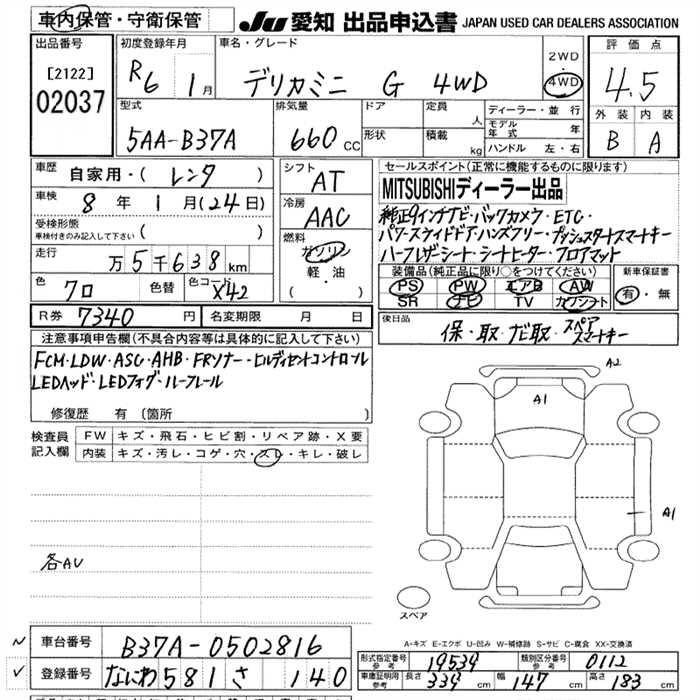 車内保管・守衛保管 JU 愛知 出品申込書 JAPAN USED CAR DEALERS ASSOCIATION
出品番号 初度登録年月 車名・グレード 評価点
[2122] R6 1月 デリカミニ G 4WD 2WD 4WD 4.5
02037 外装 内装
型式 排気量 ドア 定員 人 ディーラー・並行 B A
5AA-B37A 660 CC 形状 積載 kg モデル年式 年
ハンドル 左・右
車歴 自家用・( レンタ ) シフト AT セールスポイント(正常に機能するものに限ります)
車検 8年 1月(24日) 冷房 AAC MITSUBISHIディーラー出品
受検形態 純正9インチナビ・バックカメラ・ETC・
車検付きのみ記入して下さい ( ) 燃料 パワースライドドア・ハンズフリー・プッシュスタートスマートキー
走行 万5千638km ガソリン ハーフレザーシート・シートヒーター・フロアマット
軽・油 装備品(純正品に限り○をつけてください) 新車保証書
色 クロ 色替 色コード X42 ( ) PS PW エアB AW 有・無
SR ナビ TV カワシート
R券 7340 円 名変期限 月 日 後日品 保・取・ナビ取・スペアスマートキー
注意事項申告欄(不具合内容等は具体的に記入して下さい)
FCM・LDW・ASC・AHB・FRソナー・ヒルディセントコントロール
LEDヘッド・LEDフォグ・ルーフレール
修復歴 有 (箇所 )
A2
A1
検査員記入欄 FW キズ・飛石・ヒビ割・リペア跡・X要
内装 キズ・汚レ・コゲ・穴・スレ・キレ・破レ
A1
各AU
スペア
A-キズ E-エクボ U-凹み W-補修跡 S-サビ C-腐食 XX-交換済
車台番号 B37A-0502816 形式指定番号 参考 19534 類別区分番号 参考 0112
登録番号 なにわ 581 さ 140 車庫証明用 参考 長さ 339 cm 幅 147 cm 高さ 183 cm